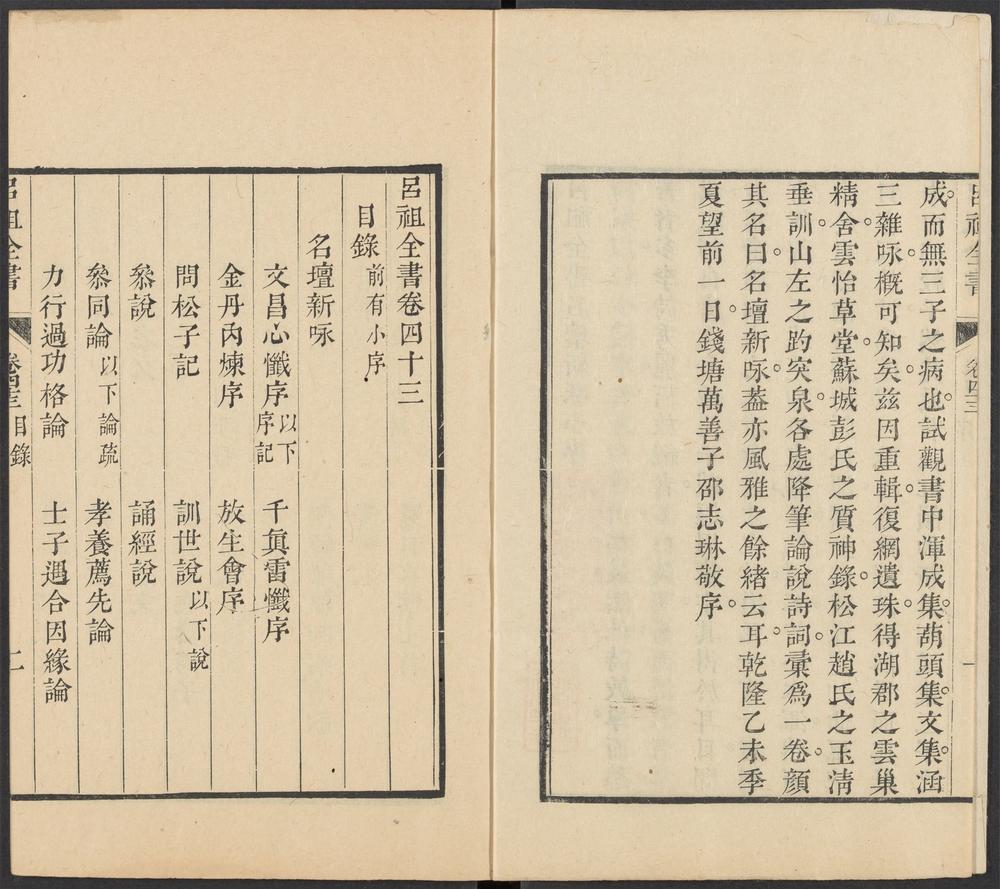 呂祖全書 卷四三 一
成而無三子之病也試觀書中渾成集葫頭集文集涵
三雜咏概可知矣茲因重輯復網遺珠得湖郡之雲巢
精舍雲怡草堂蘇城彭氏之質神錄松江趙氏之玉清
垂訓山左之趵突泉各處降筆論說詩詞彙爲一卷顏
其名曰名壇新咏葢亦風雅之餘緒云耳乾隆乙未季
夏望前一日錢塘萬善子邵志琳敬序
呂祖全書卷四十三
目錄 前有小序
名壇新咏
文昌心懺序 以下序記 千眞雷懺序
金丹內煉序 放生會序
問松子記 訓世說 以下說
叅說 誦經說
叅同論 以下論疏 孝養薦先論
力行過功格論 士子遇合因緣論
呂祖全書 卷四三 目錄 二